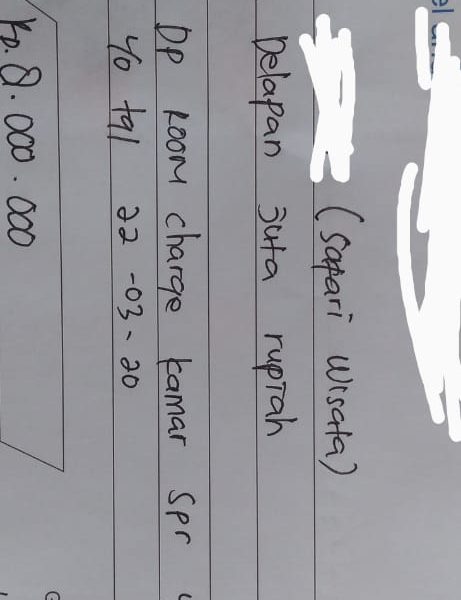 (Safari Wisata)
Delapan Juta rupiah
DP Room charge kamar Spr
u/o tgl 22-03-20
Rp. 8.000.000